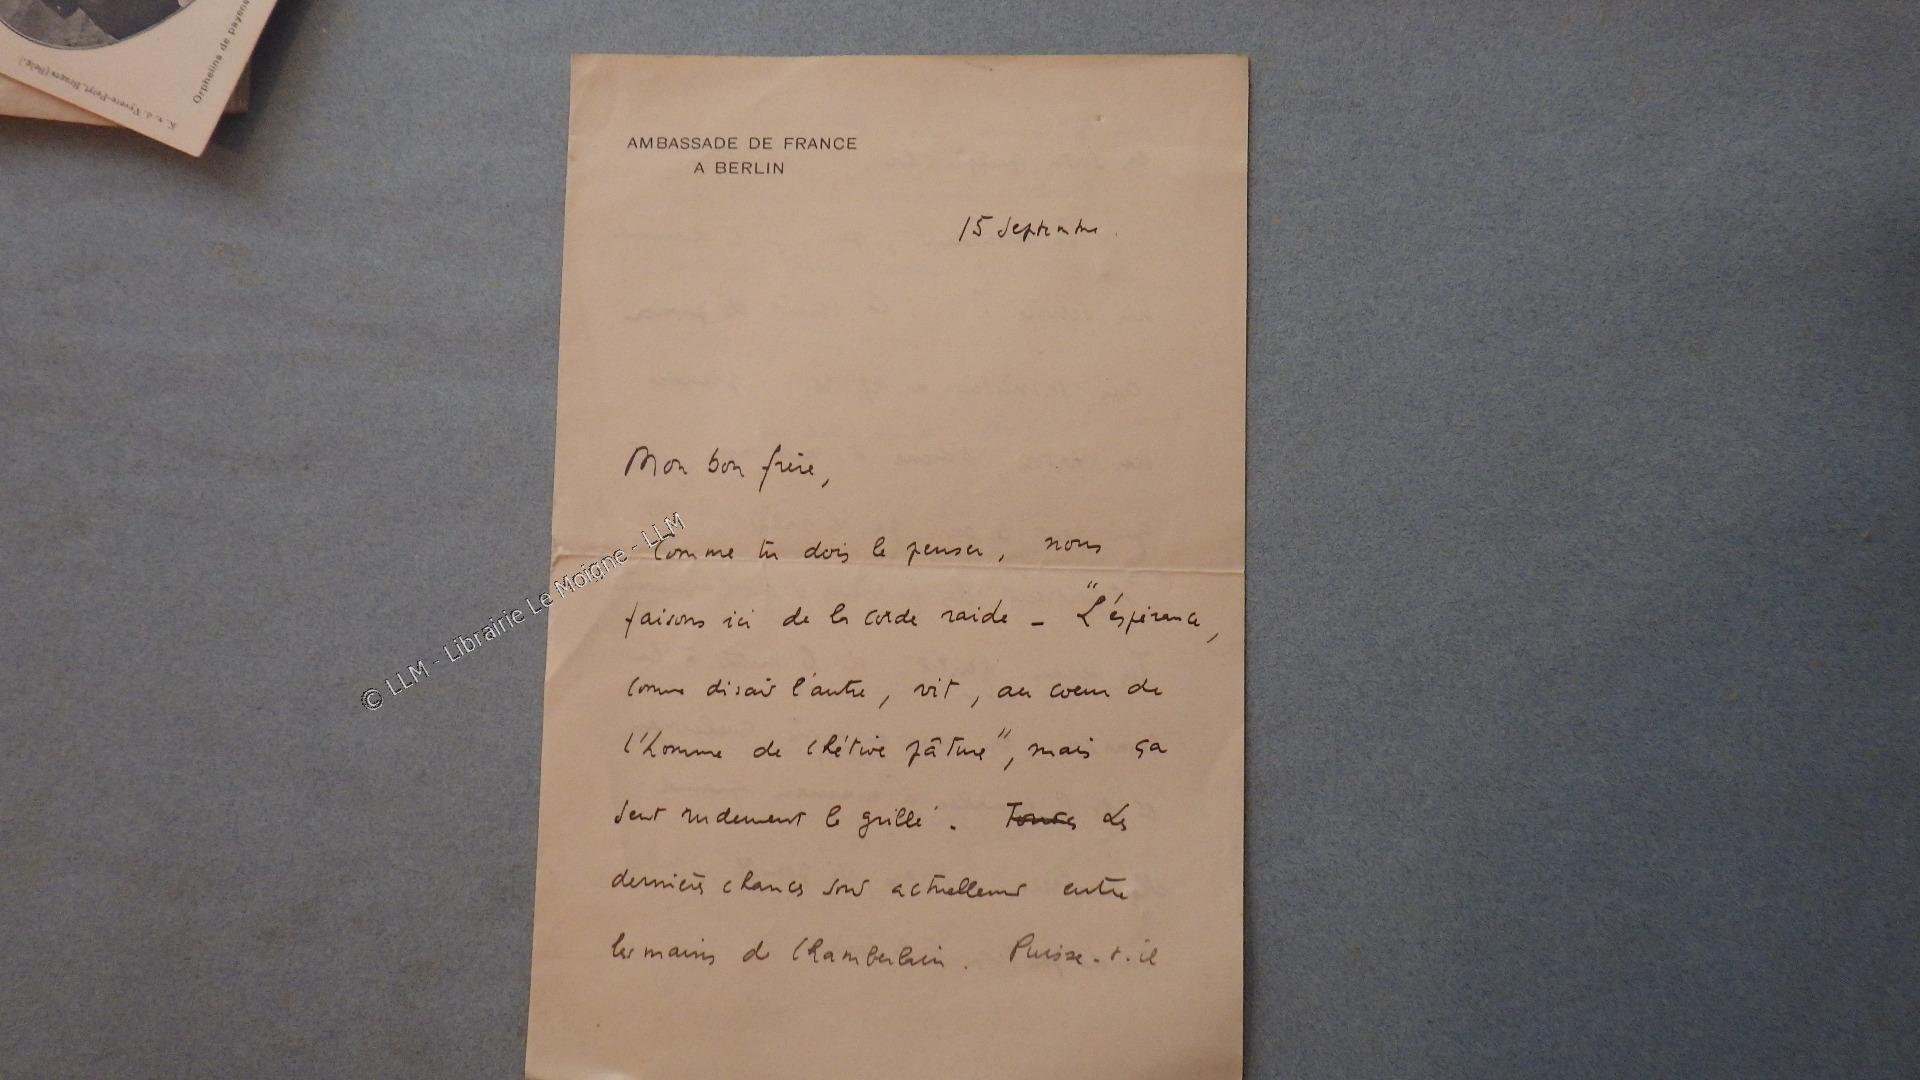 Orphelins de payens
K. v. d. Vyvere-Petyt, Bruges (Belg.)
AMBASSADE DE FRANCE
A BERLIN
15 Septembre.
Mon bon frère,
Comme tu dois le penser, nous
faisons ici de la corde raide - "L'éspérance,
comme disait l'autre, vit, au coeur de
l'homme de chétive pâture", mais ça
sent rudement le grillé. Toutes Les
dernières chances sont actuellement entre
les mains de Chamberlain. Puisse-t-il
© LLM - Librairie Le Moigne - LLM